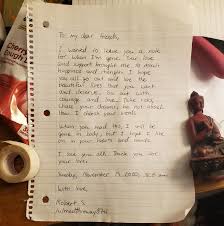 To my dear friends,
I wanted to leave you a note
for when I'm gone. Your love
and support brought me so much
happiness and
you all go out and live the
beautiful lives that you want
and deserve. Go out with
courage and love. Take risks,
chase your dreams, be not afraid
When you read this, I will be
gone in body, but I hope I live
on in your hearts and minds.
I love you all. Thank you for
your love.
Sunday, November
With love,
Robert S.
cherry
cough